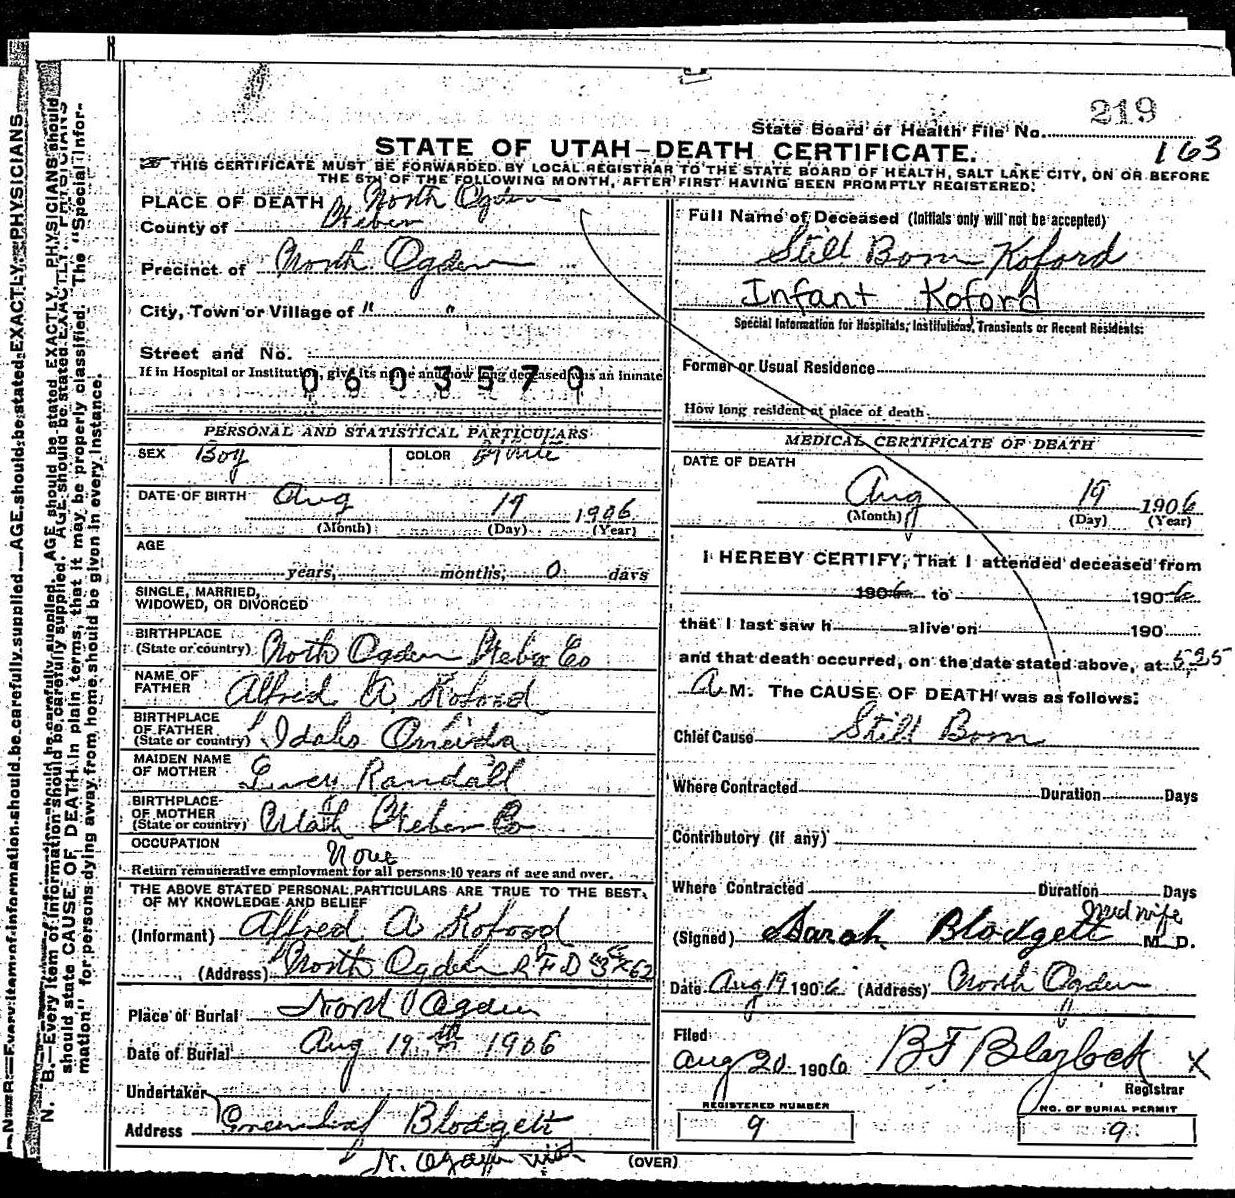 219
State Board of Health File No.
163
STATE OF UTAH—DEATH CERTIFICATE.
THIS CERTIFICATE MUST BE FORWARDED BY LOCAL REGISTRAR TO THE STATE BOARD OF HEALTH, SALT LAKE CITY, ON OR BEFORE
THE 5TH OF THE FOLLOWING MONTH, AFTER FIRST HAVING BEEN PROMPTLY REGISTERED.
PLACE OF DEATH North Ogden
County of Weber
Precinct of North Ogden
City, Town or Village of " "
Street and No.
If in Hospital or Institution, give its name and how long deceased was an inmate
0603570
PERSONAL AND STATISTICAL PARTICULARS
SEX Boy COLOR White
DATE OF BIRTH Aug 19 1906
(Month) (Day) (Year)
AGE
years, months, 0 days
SINGLE, MARRIED,
WIDOWED, OR DIVORCED
BIRTHPLACE
(State or country) North Ogden Weber Co
NAME OF
FATHER Alfred A Koford
BIRTHPLACE
OF FATHER
(State or country) Idaho Oneida
MAIDEN NAME
OF MOTHER Randall
BIRTHPLACE
OF MOTHER
(State or country) Utah Weber Co
OCCUPATION
None
Return remunerative employment for all persons 10 years of age and over.
THE ABOVE STATED PERSONAL PARTICULARS ARE TRUE TO THE BEST
OF MY KNOWLEDGE AND BELIEF
(Informant) Alfred A Koford
(Address) North Ogden R F D 62
Place of Burial North Ogden
Date of Burial Aug 19th 1906
Undertaker
Address Greenleaf Blodgett
N. Ogden Utah
Full Name of Deceased (Initials only will not be accepted)
Still Born Koford
Infant Koford
Special Information for Hospitals, Institutions, Transients or Recent Residents:
Former or Usual Residence
How long resident at place of death
MEDICAL CERTIFICATE OF DEATH
DATE OF DEATH
Aug 19 1906
(Month) (Day) (Year)
I HEREBY CERTIFY, That I attended deceased from
1906 to 1906
that I last saw h alive on 190
and that death occurred, on the date stated above, at 5.25
A M. The CAUSE OF DEATH was as follows:
Chief Cause Still Born
Where Contracted Duration Days
Contributory (if any)
Where Contracted Duration Days
Midwife
(Signed) Sarah Blodgett M. D.
Date Aug 19 1906 (Address) North Ogden
Filed
Aug 20 1906 B F Blaylock X
Registrar
REGISTERED NUMBER
9
NO. OF BURIAL PERMIT
9
(OVER)
N. B.—Every item of information should be carefully supplied. AGE should be stated EXACTLY. PHYSICIANS should
should state CAUSE OF DEATH in plain terms, that it may be properly classified. The "Special Infor-
mation" for persons dying away from home should be given in every instance.
N. B.—Every item of information should be carefully supplied. AGE should be stated EXACTLY. PHYSICIANS